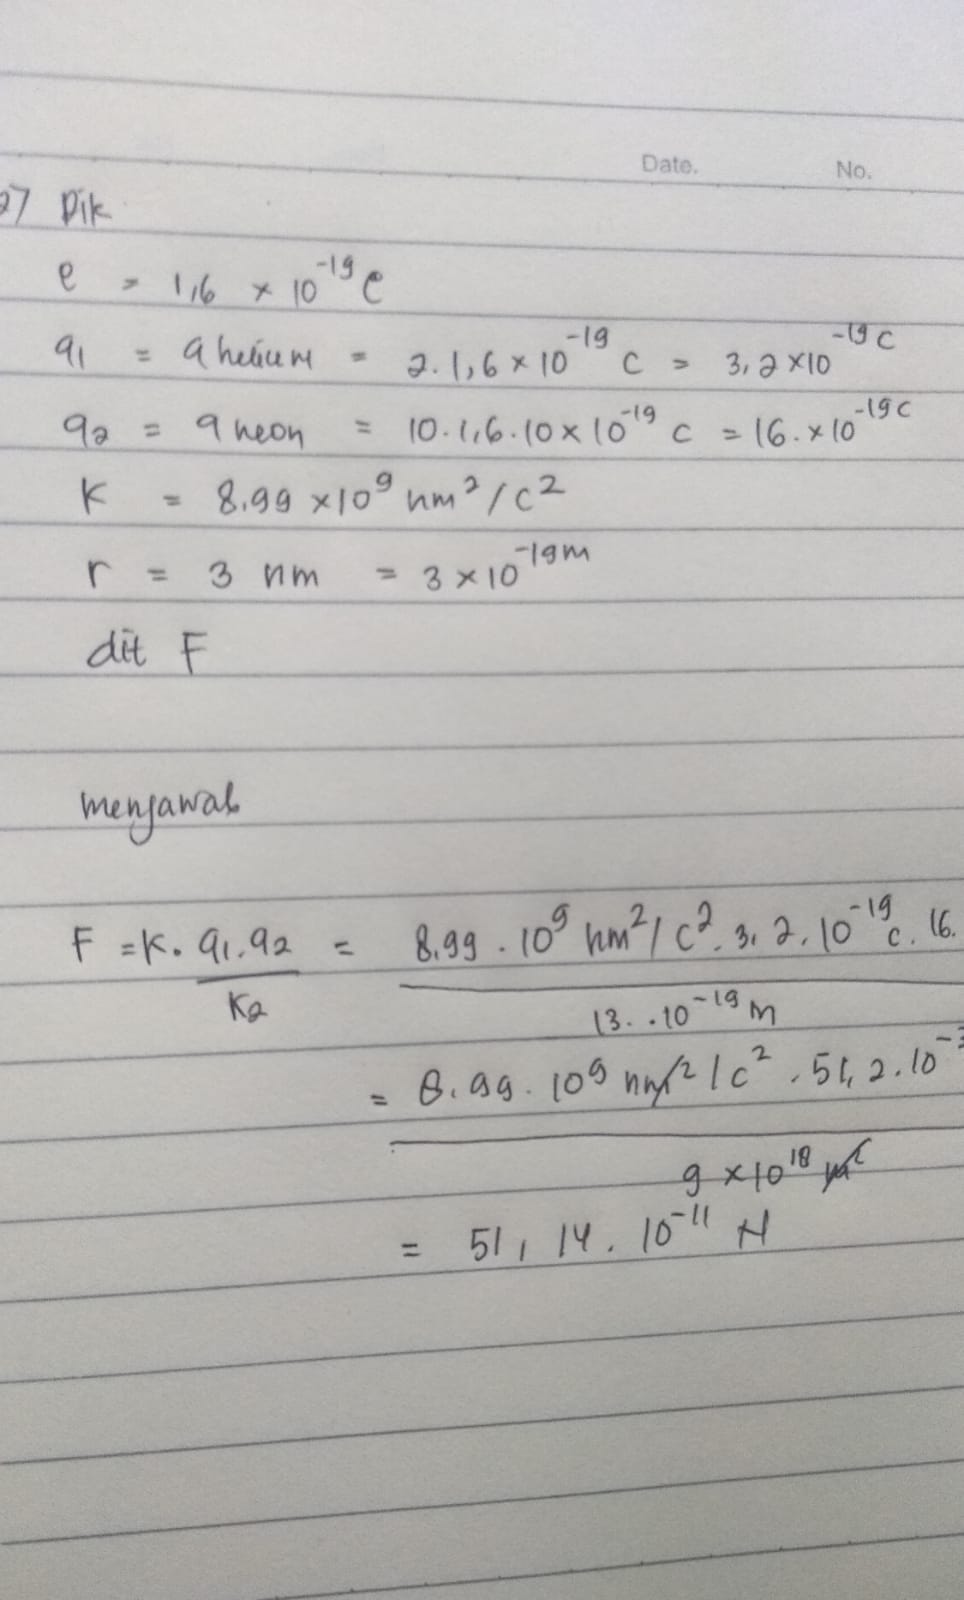 Date. No.
27 Dik
e = 1,6 × 10^-19 C
q1 = q helium = 2.1,6 × 10^-19 C = 3,2 ×10^-19 C
q2 = q neon = 10.1,6.10 × 10^-19 C = 16.×10^-19 C
K = 8,99 ×10^9 nm²/C²
r = 3 nm = 3 × 10^-19 m
dit F
menjawab
F = K. q1.q2 = 8,99 . 10^9 nm²/C². 3,2.10^-19 C. 16.
K2 13. .10^-19 m
= 8.99. 10^9 nm²/C² . 51,2.10
9 ×10^18 m²
= 51,14. 10^-11 N